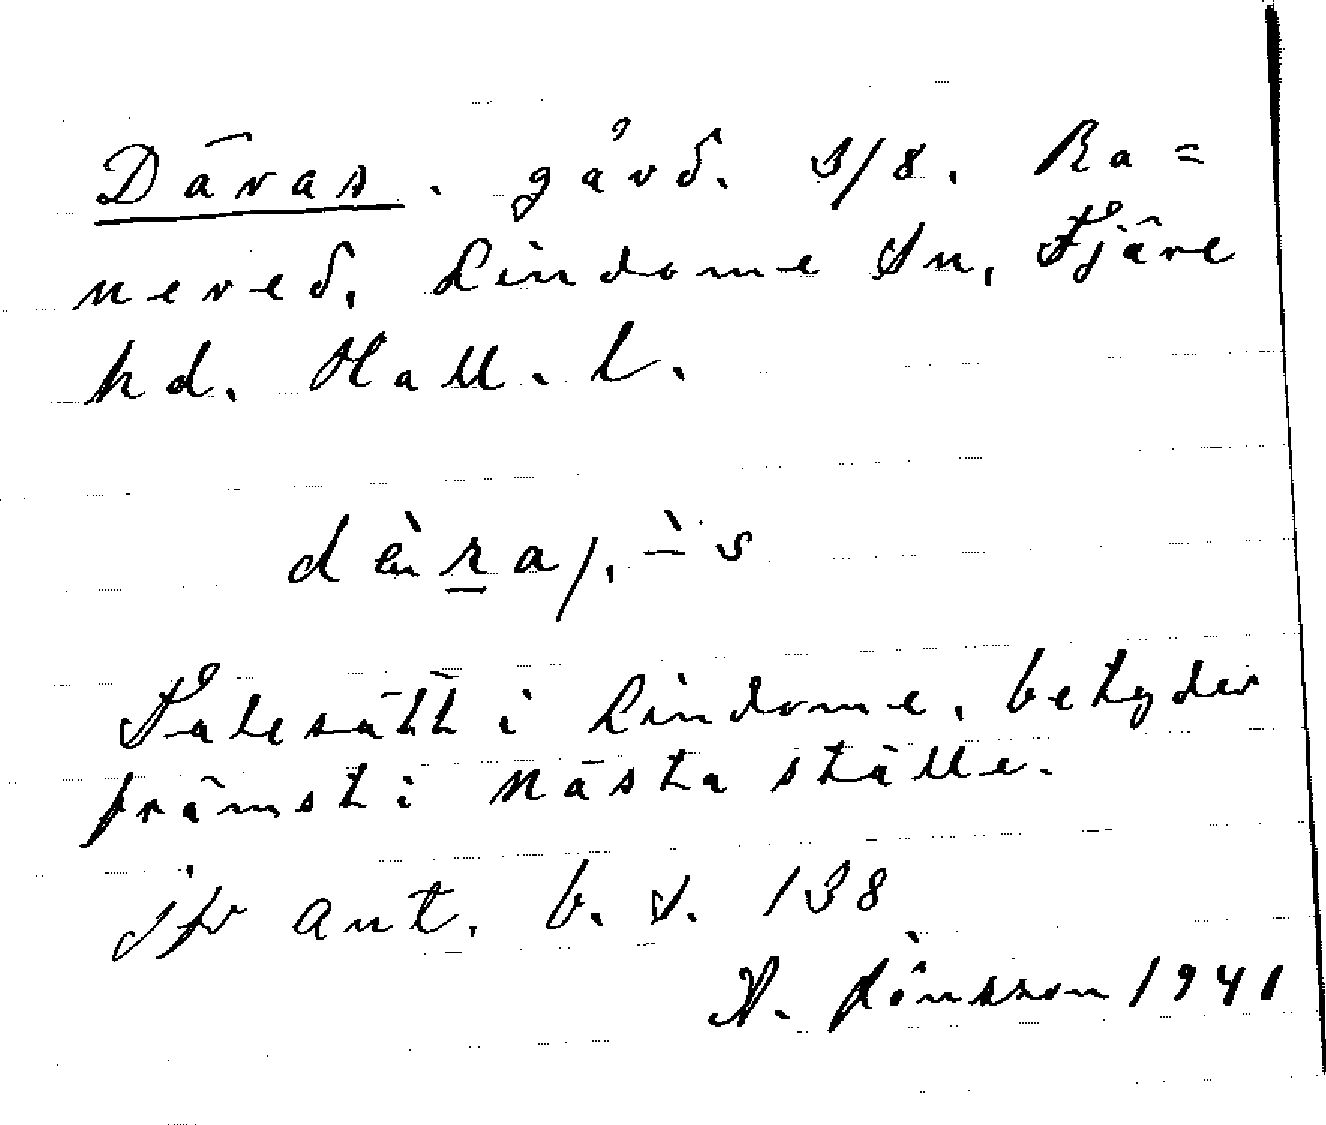 Däras. gård. 3/8. Ra=
nered, Lindome Sn, Fjäre
hd. Hall. l.
Talesätt i Lindome, betyder
främst i nästa ställe.
Jfr ant. b. s. 138
Jönsson 1941